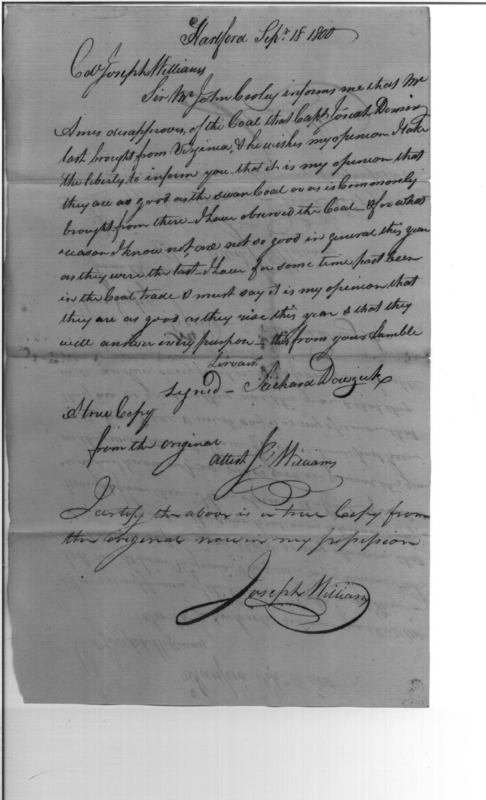 Hartford Sepr. 18 1800
Colo Joseph Williams
Sir Mr John Cooley informs me that Mr
Ames disapproves of the Coal that Capt Josiah
last brought from Virginia, & he wishes my opinion I take
the liberty to inform you that it is my opinion that
they are as good as the Coal or as is Commonly
brought from there I have observed the Coal & for what
reason I know not, are not so good in general this year
as they were the last I have for some time past been
in the Coal trade & must say it is my opinion that
they are as good as they rise this year & that they
will answer every purpose this from your humble
Servant
signd Richard
A true Copy
from the original
attest J Williams
I certify the above is a true Copy from
the original now in my possession
Joseph Williams